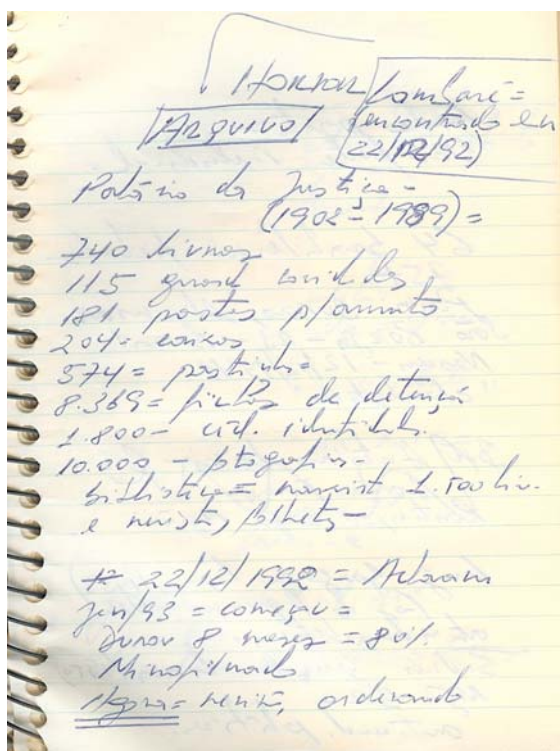 Horror
Lambaré =
(encontrado en
22/12/92)
Arquivo
Palácio da Justiça -
(1902 - 1989) =
740 livros
115
181 pastas p/assunto
204 = caixas
574 = pastinhas =
8.369 = fichas de detenção
1.800 - ced. identidade.
10.000 - fotografias -
biblioteca = marxist 1.500 liv.
e revistas, folhetos -
# 22/12/1992 = Acharam
jan/93 = começou =
Durou 8 meses = 80%.
Microfilmado
Agora = revisa, ordenando